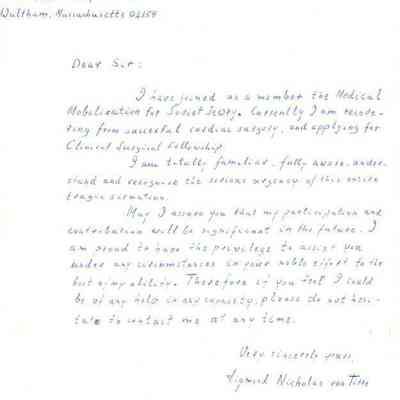 Waltham, Massachusetts 02154
Dear Sir:
I have joined as a member the Medical
Mobilization for Soviet Jewry. Currently I am recove-
ring from succesful cardiac surgery, and applying for
Clinical Surgical Fellowship.
I am totally familiar, fully aware, under-
stand and recognize the serious urgency of this entire
tragic situation.
May I assure you that my participation and
contribution will be significant in the future. I
am proud to have the privilege to assist you
under any circumstances in your noble effort to the
best of my ability. Therefore if you feel I could
be of any help in any capacity, please do not hesi-
tate to contact me at any time.
Very sincerely yours,
Nicholas von